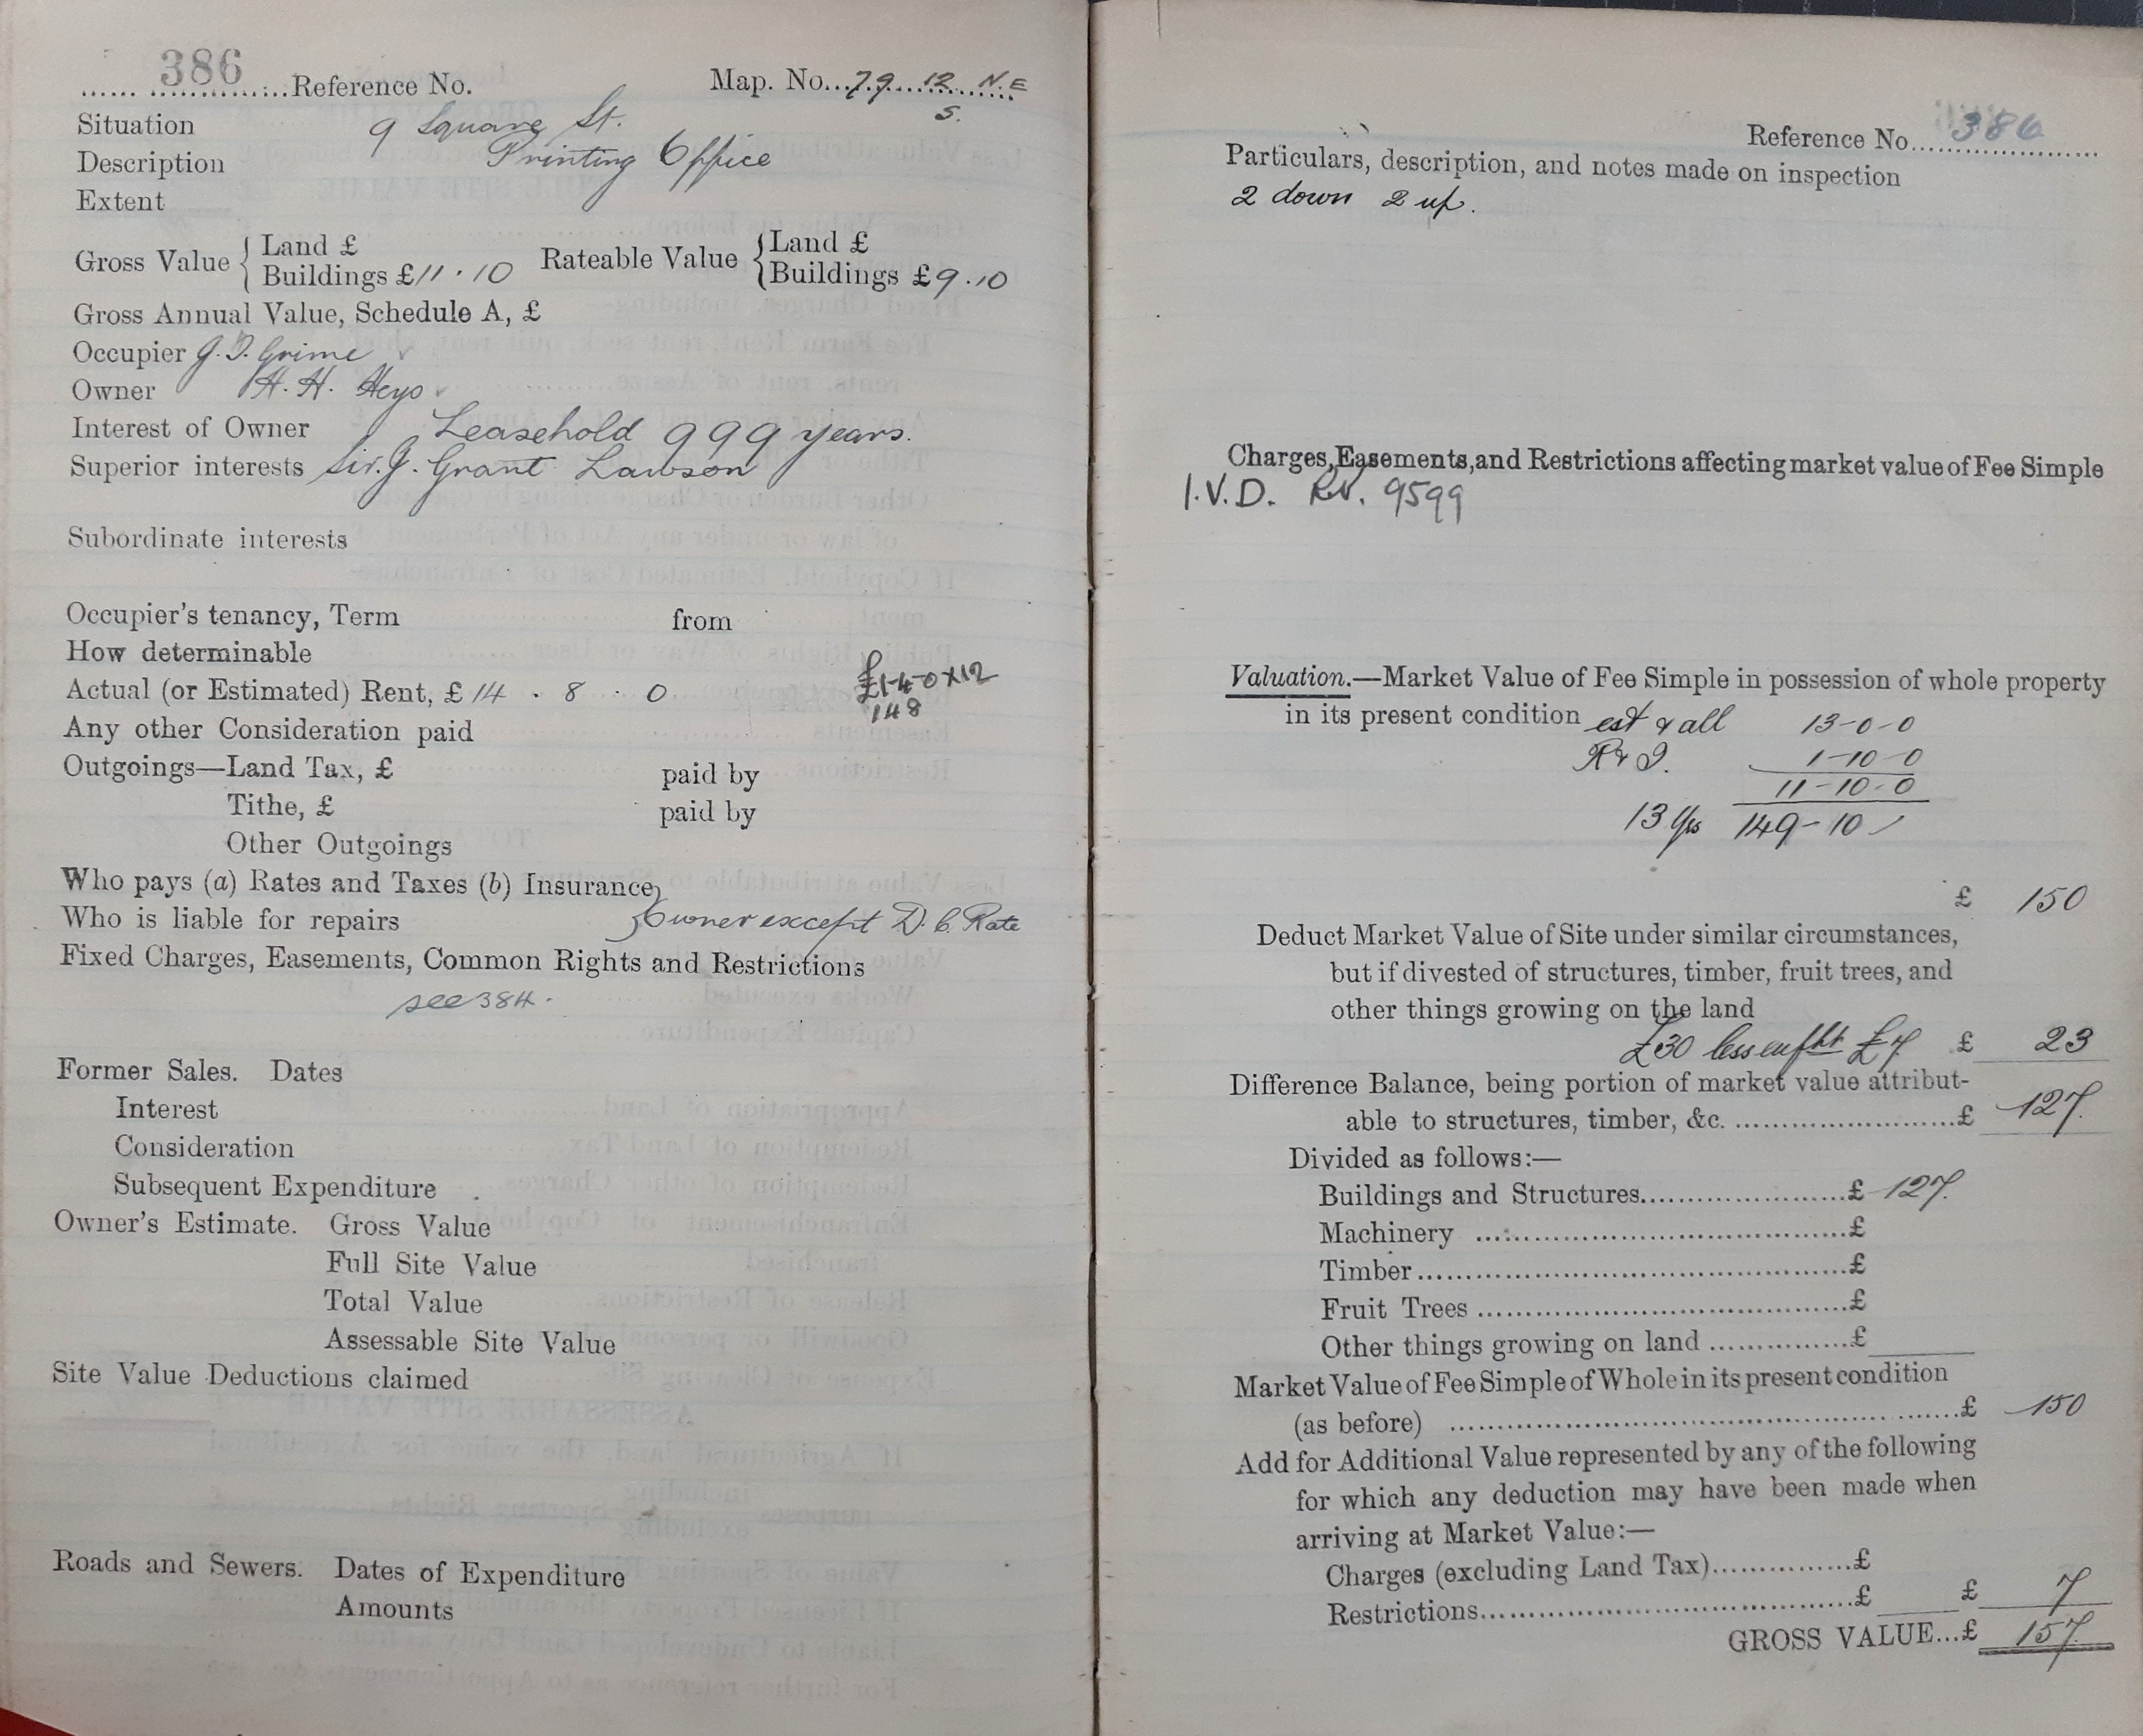 386 Reference No. Map. No. 79 12 N.E
S.
Situation 9 Square St.
Description Printing Office
Extent
Gross Value { Land £
Buildings £11.10
Rateable Value { Land £
Buildings £9.10
Gross Annual Value, Schedule A, £
Occupier J. T. Grime
Owner H. H. Heys
Interest of Owner Leasehold 999 years.
Superior interests Sir. J. Grant Lawson
Subordinate interests
Occupier's tenancy, Term from
How determinable
Actual (or Estimated) Rent, £ 14 . 8 . 0 £1-4-0 x 12
14 8
Any other Consideration paid
Outgoings—Land Tax, £ paid by
Tithe, £ paid by
Other Outgoings
Who pays (a) Rates and Taxes (b) Insurance
Who is liable for repairs } Owner except D. C. Rate
Fixed Charges, Easements, Common Rights and Restrictions
see 384.
Former Sales. Dates
Interest
Consideration
Subsequent Expenditure
Owner's Estimate. Gross Value
Full Site Value
Total Value
Assessable Site Value
Site Value Deductions claimed
Roads and Sewers. Dates of Expenditure
Amounts
Reference No. 386
Particulars, description, and notes made on inspection
2 down 2 up.
Charges, Easements, and Restrictions affecting market value of Fee Simple
I.V.D. RN. 9599
Valuation.—Market Value of Fee Simple in possession of whole property
in its present condition est & all 13-0-0
R & I. 1-10-0
11-10-0
13 Yrs 149-10
£ 150
Deduct Market Value of Site under similar circumstances,
but if divested of structures, timber, fruit trees, and
other things growing on the land
£30 less £7 £ 23
Difference Balance, being portion of market value attribut-
able to structures, timber, &c. £ 127
Divided as follows:—
Buildings and Structures £ 127
Machinery £
Timber £
Fruit Trees £
Other things growing on land £
Market Value of Fee Simple of Whole in its present condition
(as before) £ 150
Add for Additional Value represented by any of the following
for which any deduction may have been made when
arriving at Market Value:—
Charges (excluding Land Tax) £
Restrictions £ £ 7
GROSS VALUE...£ 157